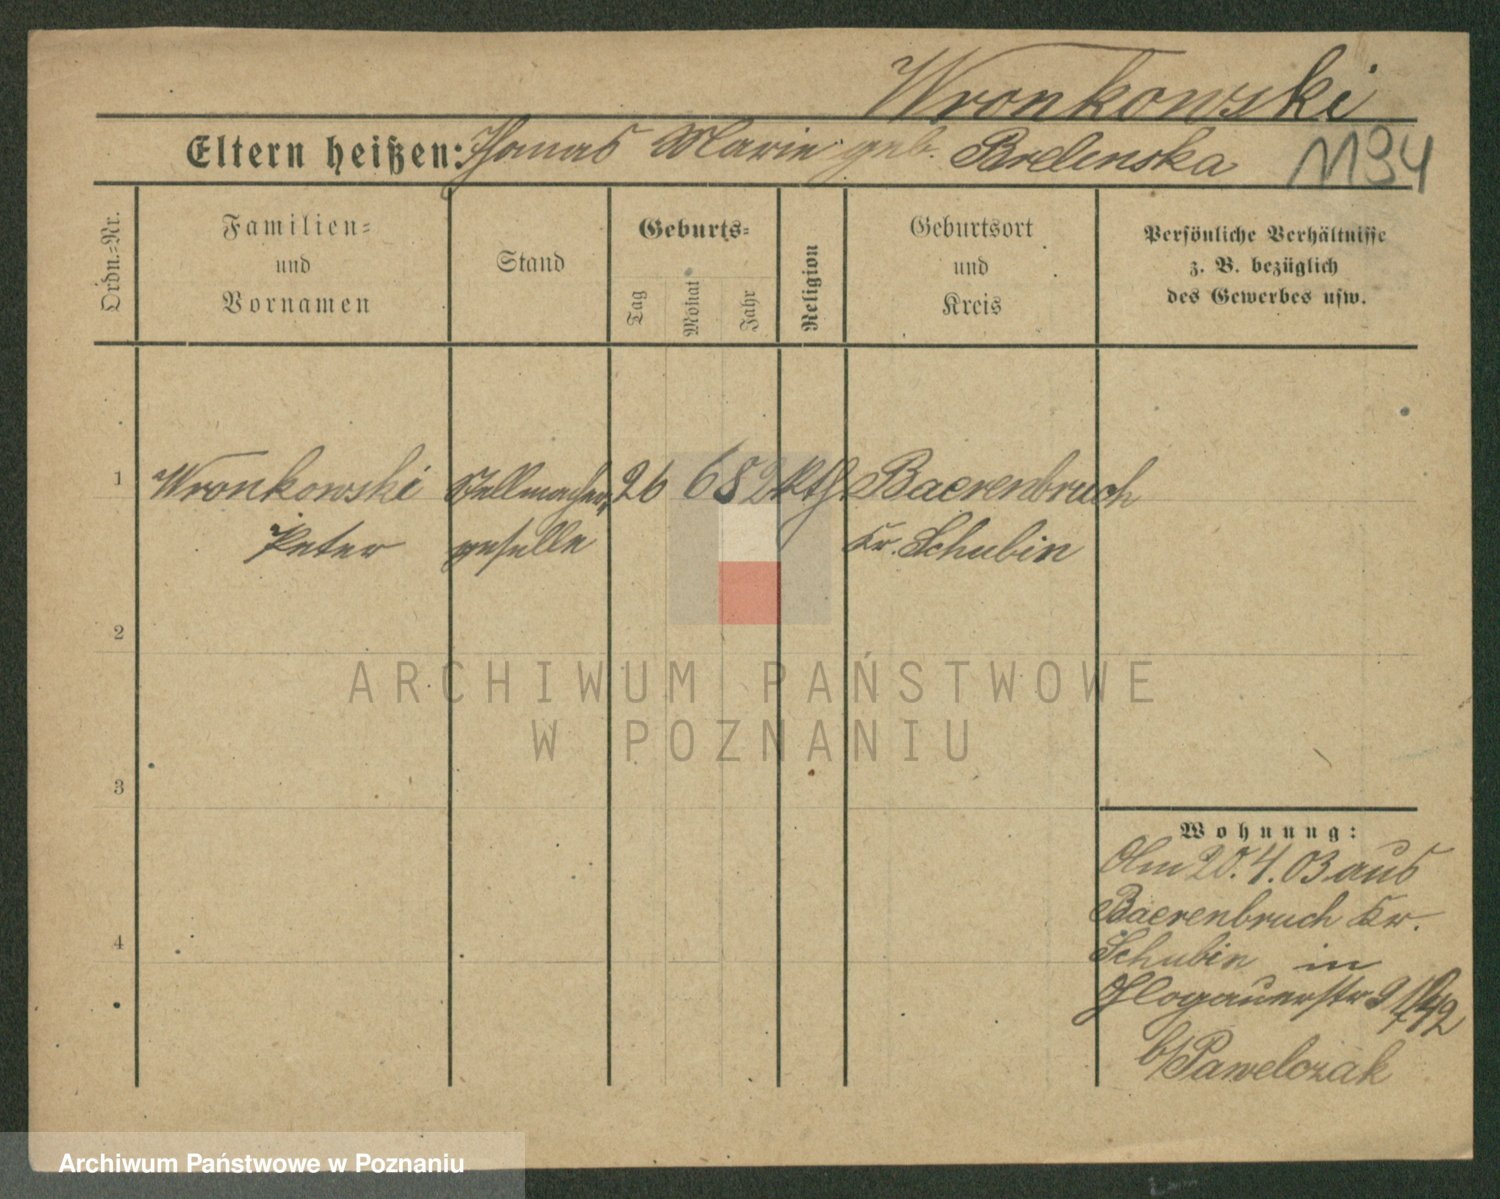 Wronkowski
Eltern heißen: Thomas Marie geb. Brelinska
1194
Ordn.-Nr.
Familien-
und
Vornamen
Stand
Geburts-
Tag
Monat
Jahr
Religion
Geburtsort
und
Kreis
Persönliche Verhältnisse
z. B. bezüglich
des Gewerbes usw.
1 Wronkowski Stellmacher 26 6 82 kth Baerenbruch
Peter geselle Kr. Schubin
2
3
4
ARCHIWUM PAŃSTWOWE
W POZNANIU
Wohnung:
Am 20.4.03 aus
Baerenbruch Kr.
Schubin in
Glogauerstr
b/ Pawelczak
Archiwum Państwowe w Poznaniu